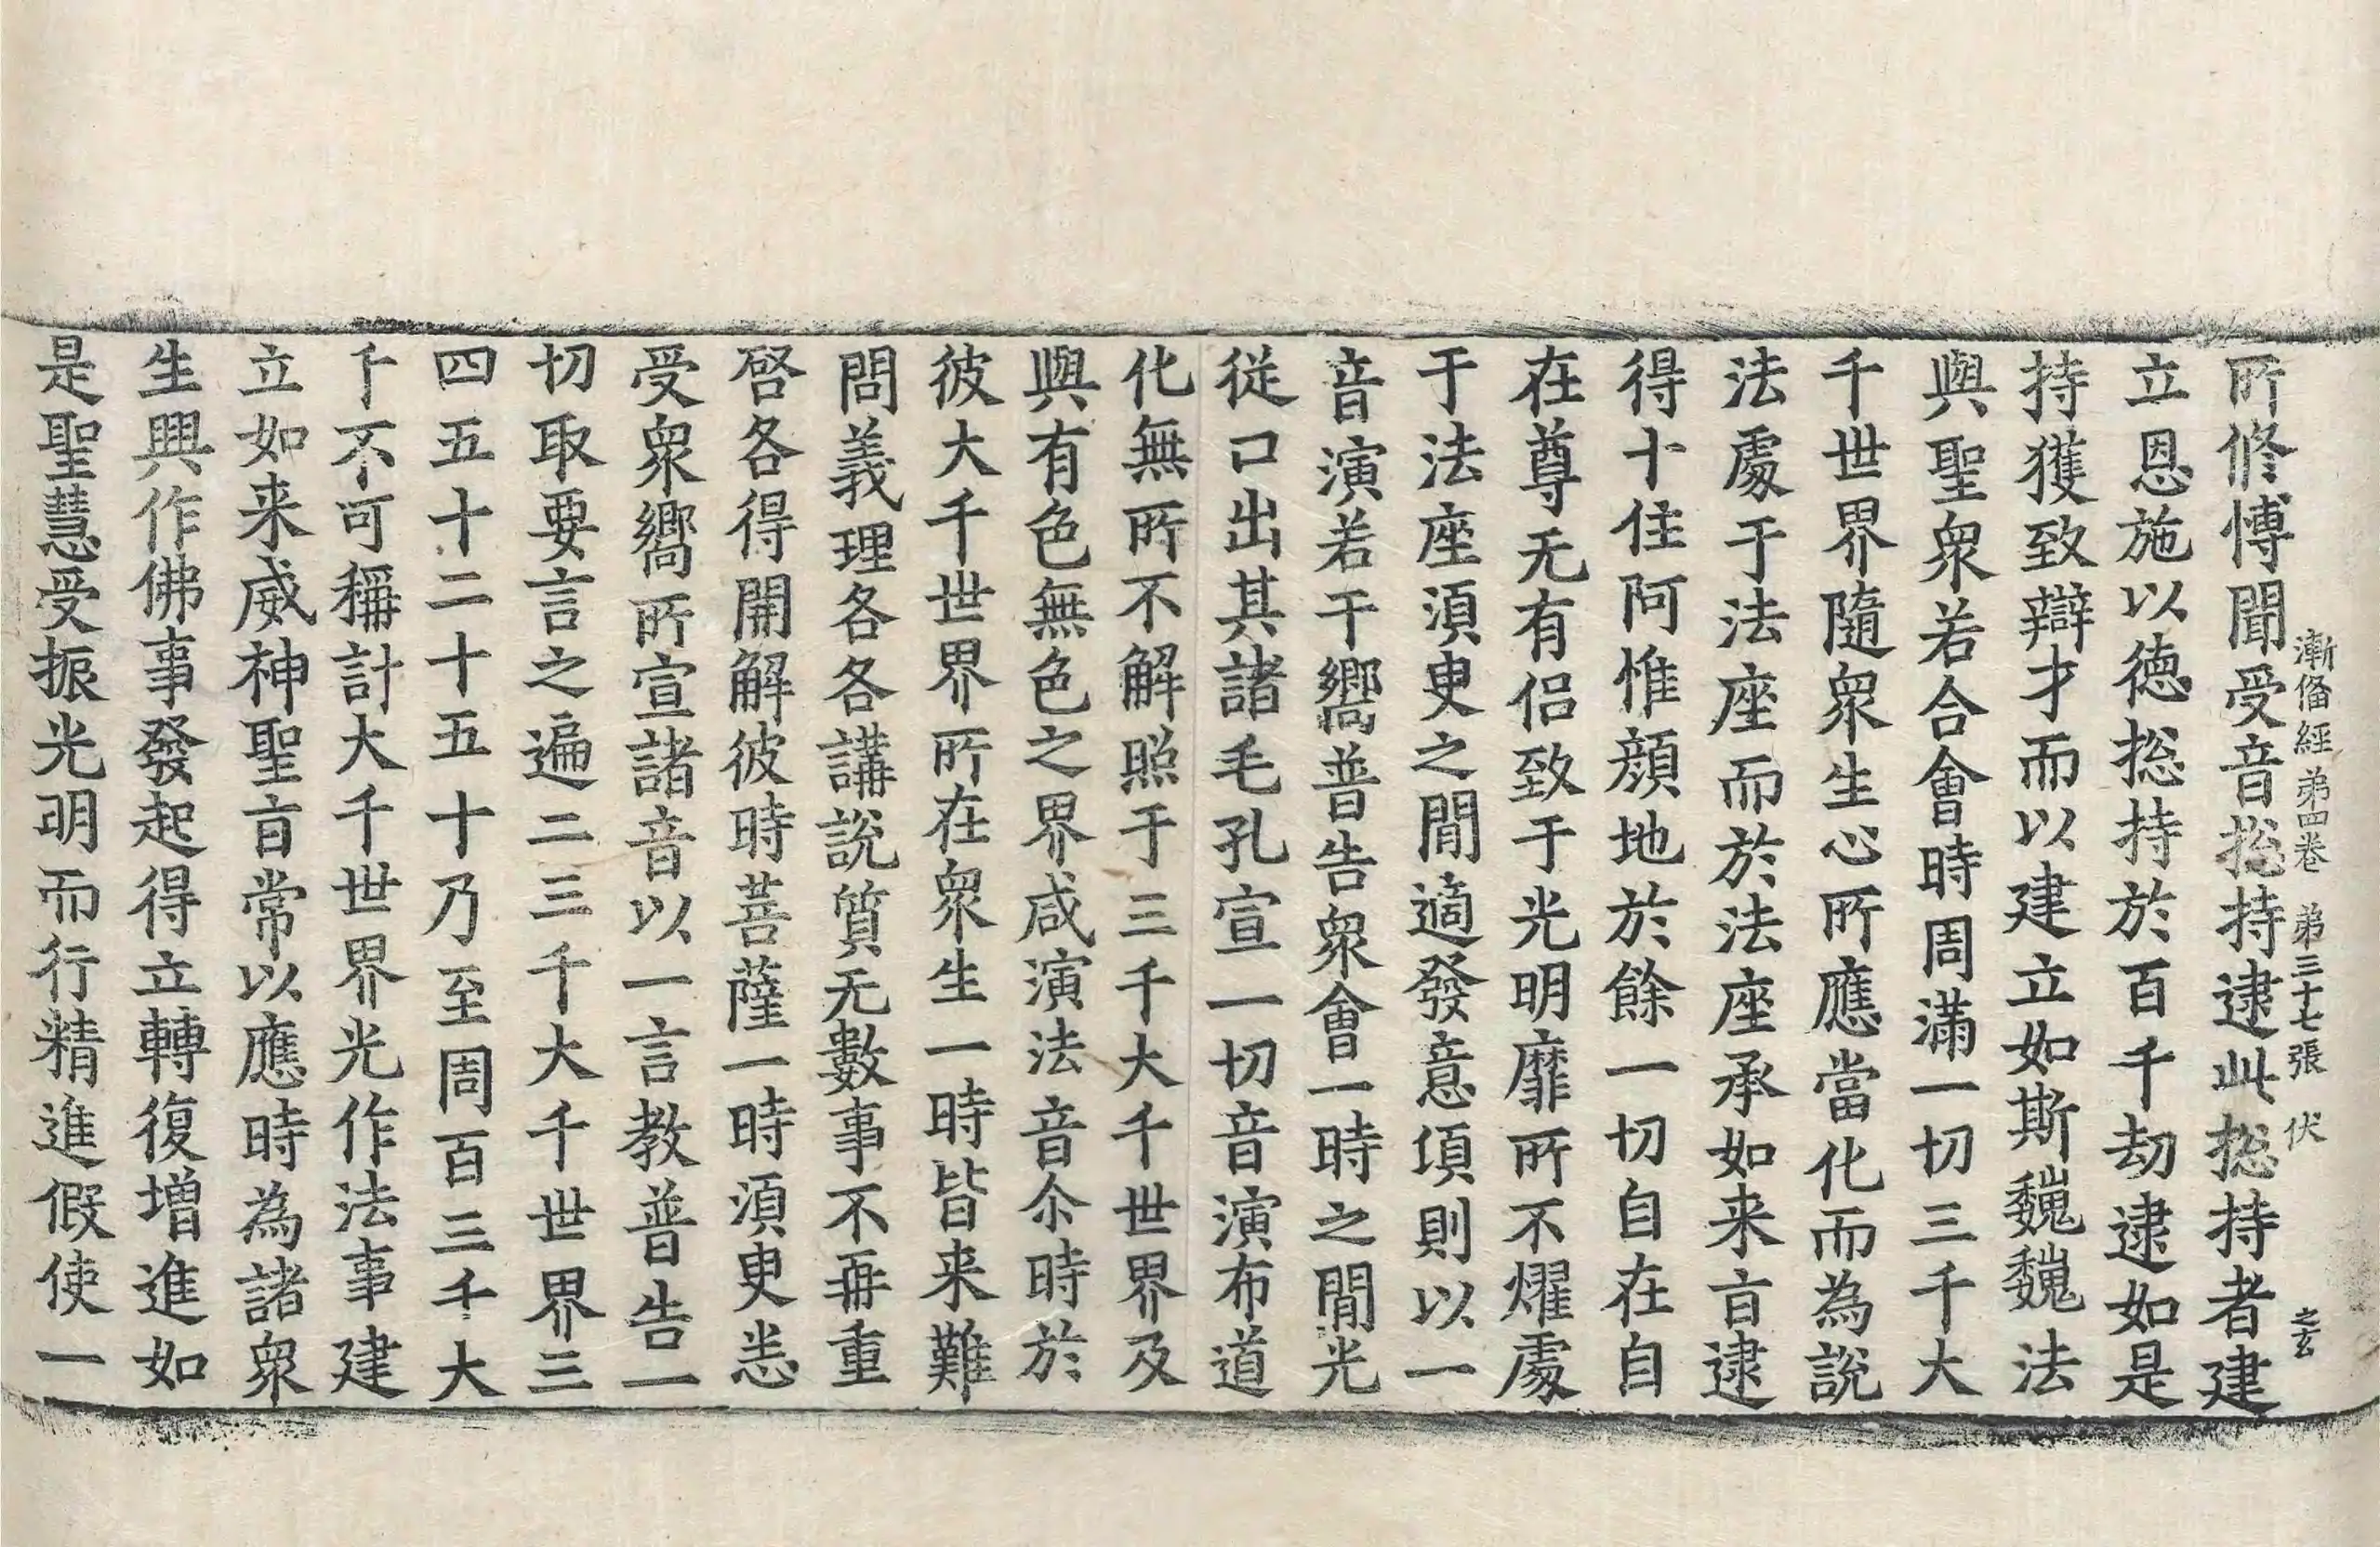 漸俻經第四卷 第三十七張 伏 之玄
所修博聞受音捴持逮此捴持者建
立恩施以德捴持於百千劫逮如是
持獲致辯才而以建立如斯巍巍法
與聖衆若合會時周滿一切三千大
千世界隨衆生心所應當化而為說
法處于法座而於法座承如来旨逮
得十住阿惟顏地於餘一切自在自
在尊无有侣致于光明靡所不耀處
于法座須臾之閒適發意項則以一
音演若干嚮普告衆會一時之閒光
從口出其諸毛孔宣一切音演布道
化無所不解照于三千大千世界及
與有色無色之界咸演法音尒時於
彼大千世界所在衆生一時皆来難
問義理各各講說質无數事不再重
啓各得開解彼時菩薩一時須臾悉
受衆嚮所宣諸音以一言教普告一
切取要言之遍二三千大千世界三
四五十二十五十乃至周百三千大
千不可稱計大千世界光作法事建
立如来威神聖旨常以應時為諸衆
生興作佛事發起得立轉復增進如
是聖慧受振光明而行精進假使一